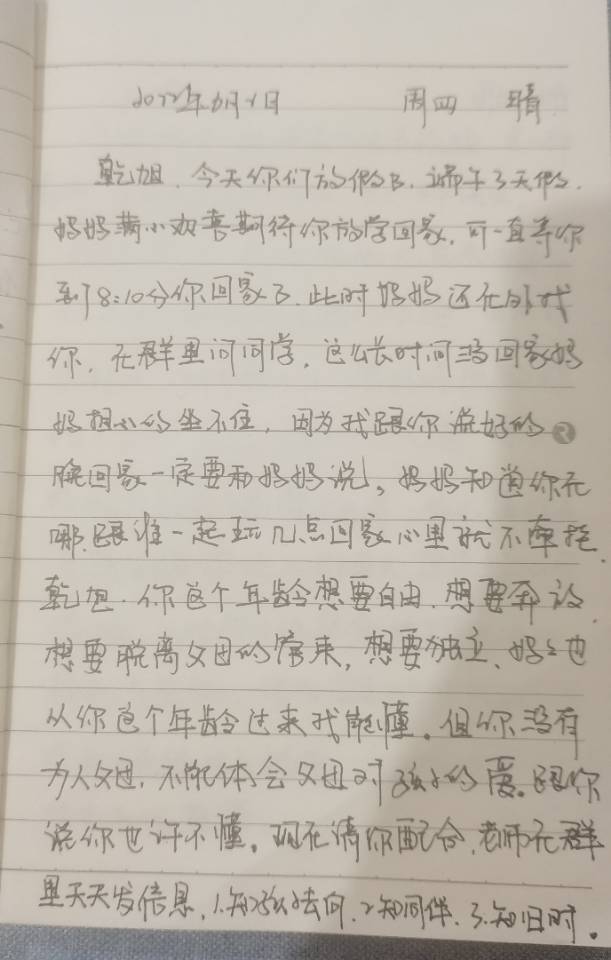 2022年6月2日 周四 晴
乾旭、今天你们放假了、端午3天假、
妈妈满心欢喜期待你放学回家、可一直等你
到了8:10分你回家了、此时妈妈还在外找
你、在群里问同学、这么长时间没回家妈
妈担心的坐不住、因为我跟你说好的
晚回家一定要和妈妈说，妈妈知道你在
哪、跟谁一起玩几点回家心里就不牵挂、
乾旭、你这个年龄想要自由、想要奔放
想要脱离父母的管束，想要独立、妈妈也
从你这个年龄过来我能懂。但你没有
为人父母、不能体会父母对孩子的爱。跟你
说你也许不懂。现在请你配合、老师在群
里天天发信息、1.知孩子去向、2.知同伴、3.知归时。